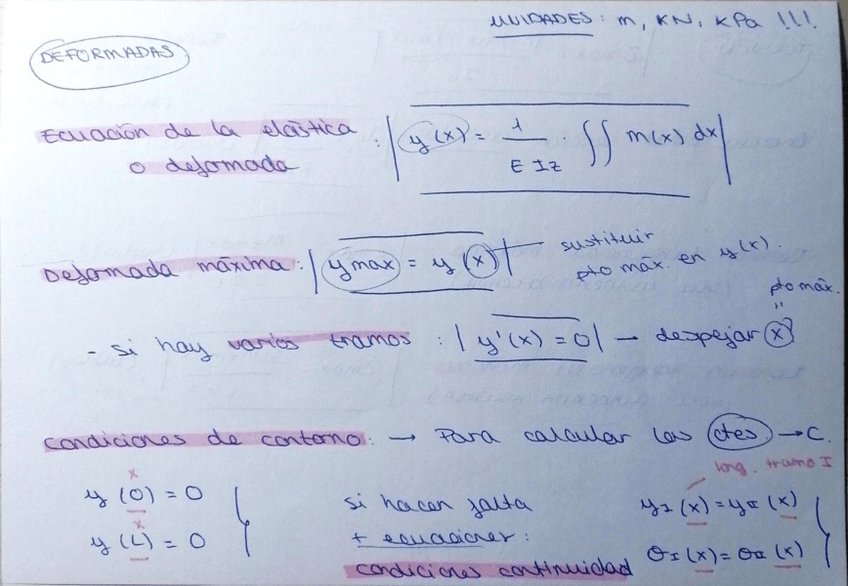 UNIDADES: m, KN, KPa !!!
DEFORMADAS
Ecuación de la elástica : | y(x) = 1 / E Iz · ∫∫ m(x) dx |
o deformada
Deformada máxima: | ymax = y (x) | sustituir
pto máx. en y(x).
pto máx.
"
- si hay varios tramos : | y'(x) = 0 | → despejar (x)
condiciones de contorno: → Para calcular las ctes → C.
long. tramo I
x
y (0) = 0
x
y (L) = 0
si hacen falta
+ ecuaciones:
condiciones continuidad
yI (x) = yII (x)
θI (x) = θII (x)